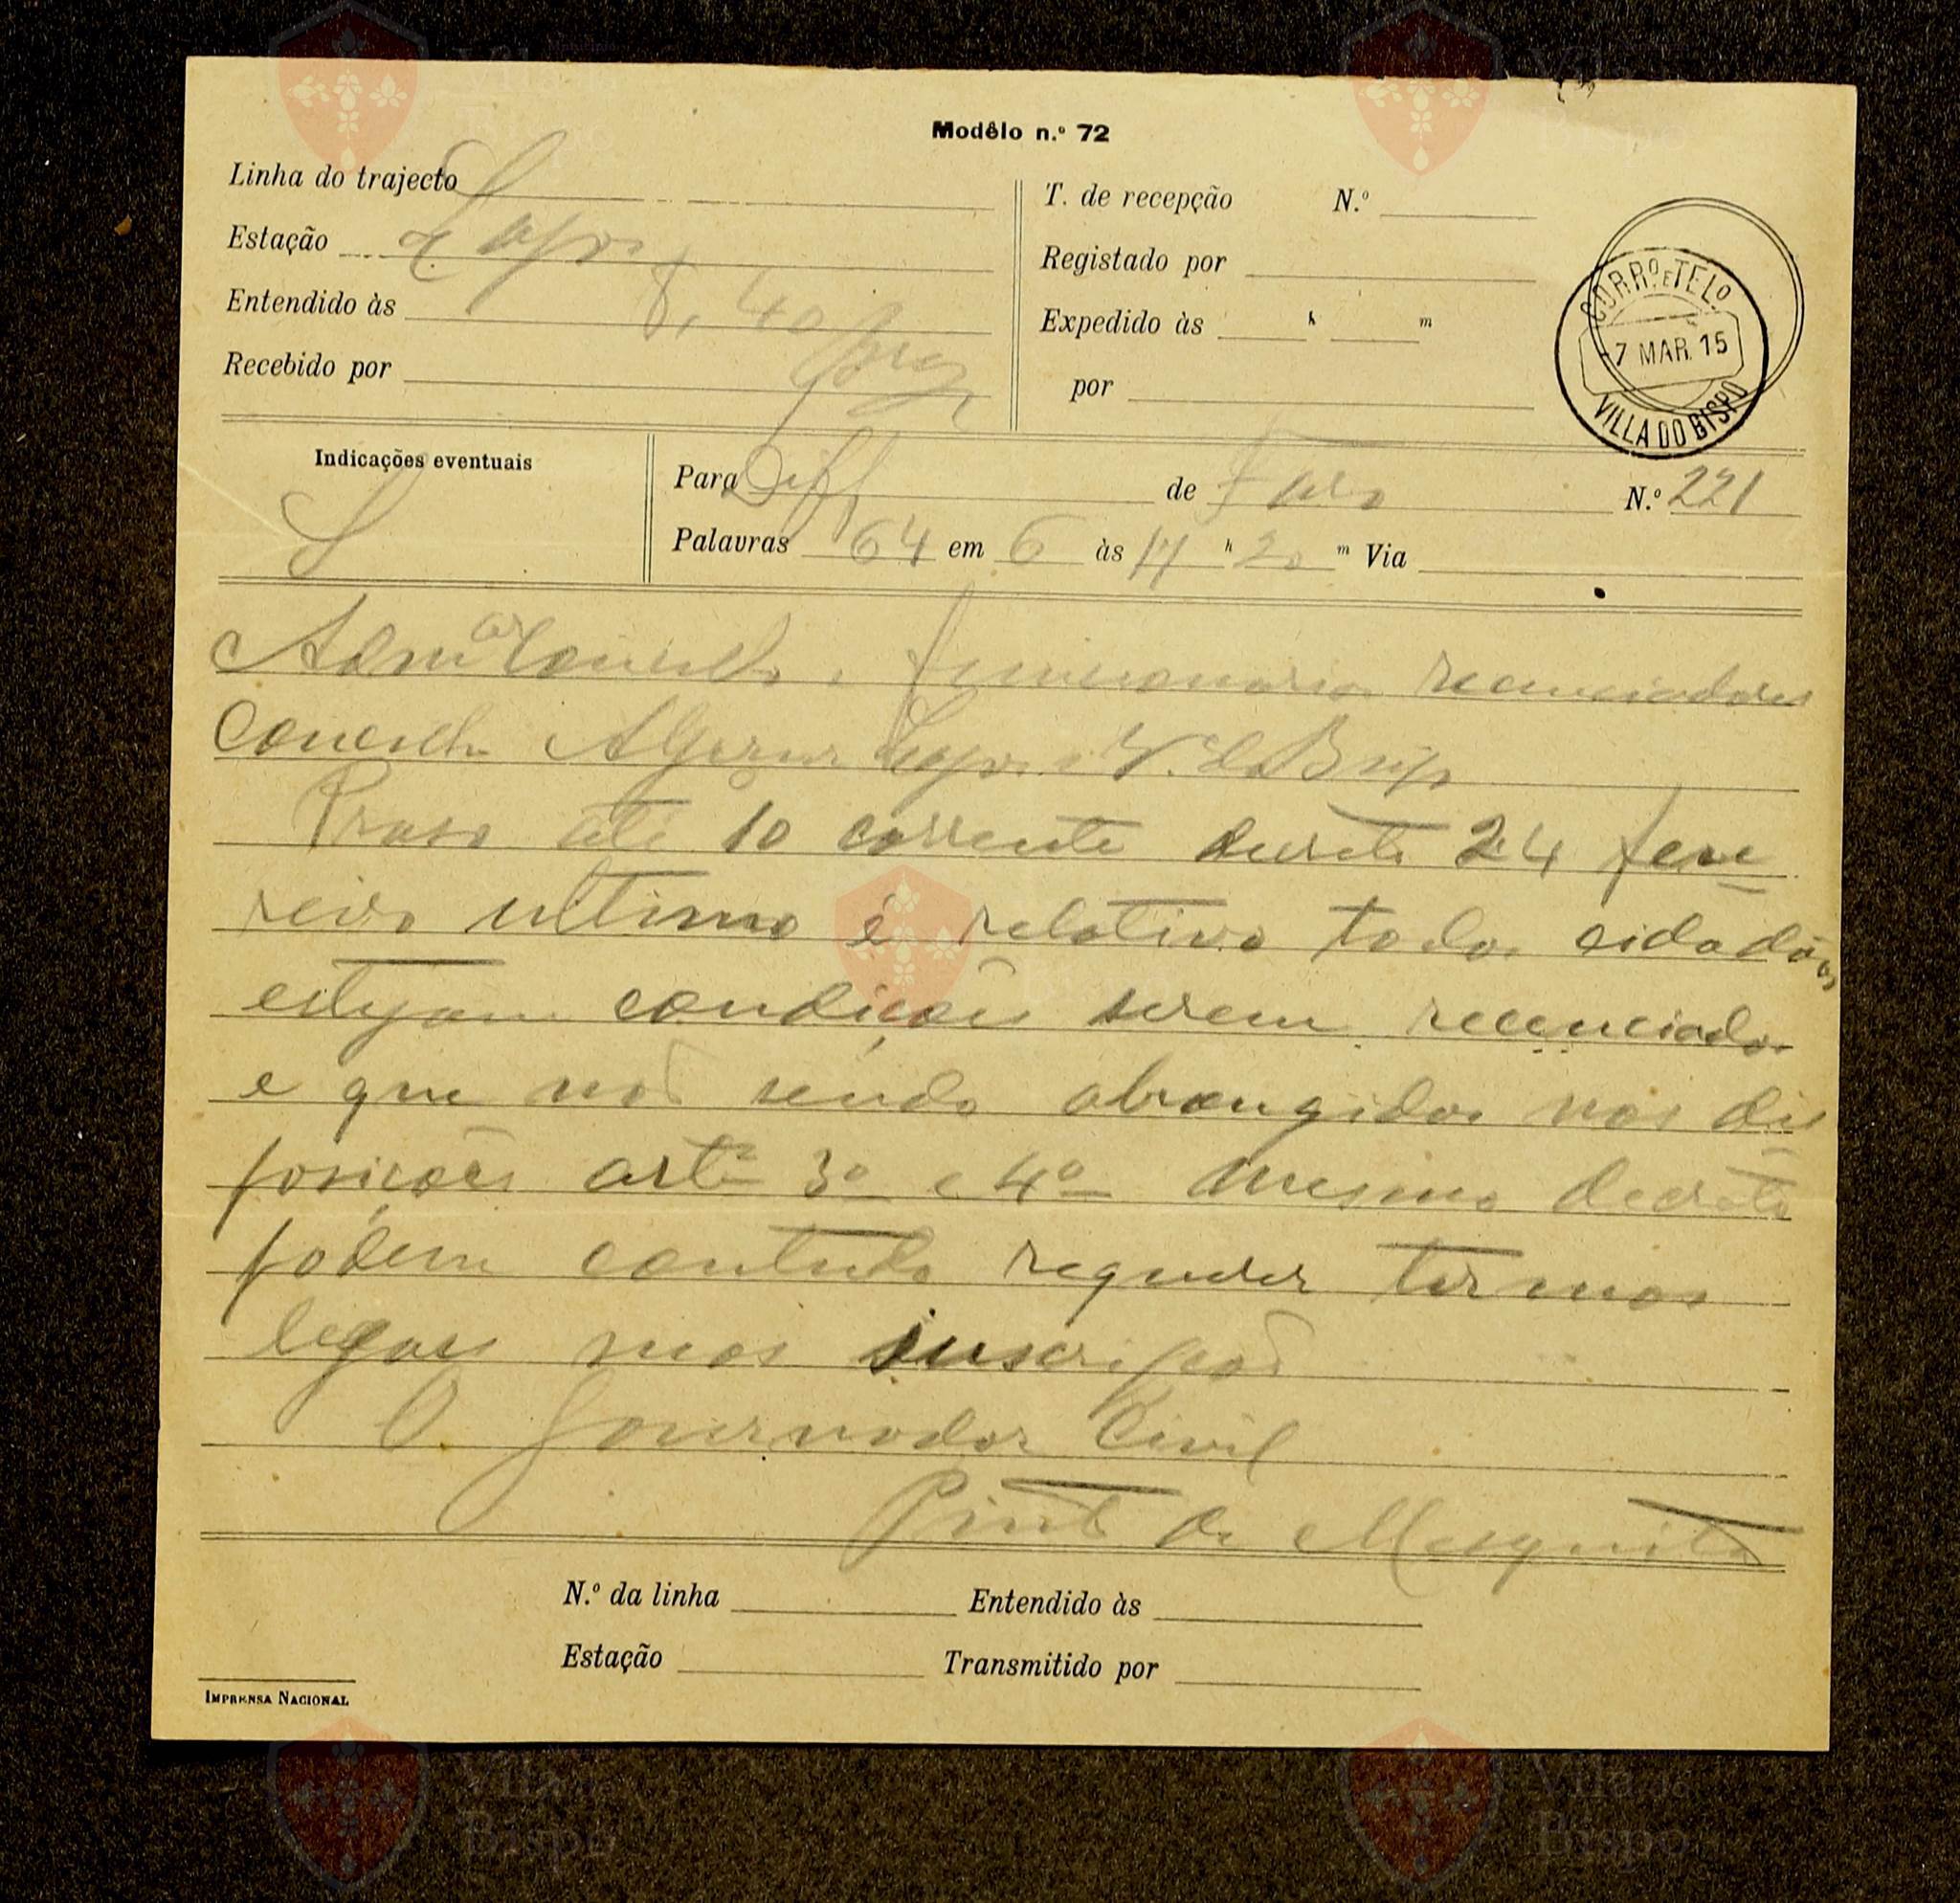 Modêlo n.º 72
Linha do trajecto
Estação Lagos
Entendido às 8,40
Recebido por
T. de recepção N.º
Registado por
Expedido às h m
por
CORRº E TELº
7 MAR. 15
VILLA DO BISPO
Indicações eventuais
S
Para Diff de Faro N.º 221
Palavras 64 em 6 às 17 h 20 m Via
Admor Concelho e funcionarios recenciadores
Concelho Algezur Lagos e V. do Bispo
Praso até 10 corrente decreto 24 feve
reiro ultimo é relativo todos cidadãos
estejam condições serem recenciados
e que não sendo abrangidos nas dis
posições artº 3º e 4º mesmo decreto
podem contudo requerer termos
legaes suas inscripção
O Governador Civil
Pinto de Mesquita
N.º da linha Entendido às
Estação Transmitido por
IMPRENSA NACIONAL
Vila do
Bispo